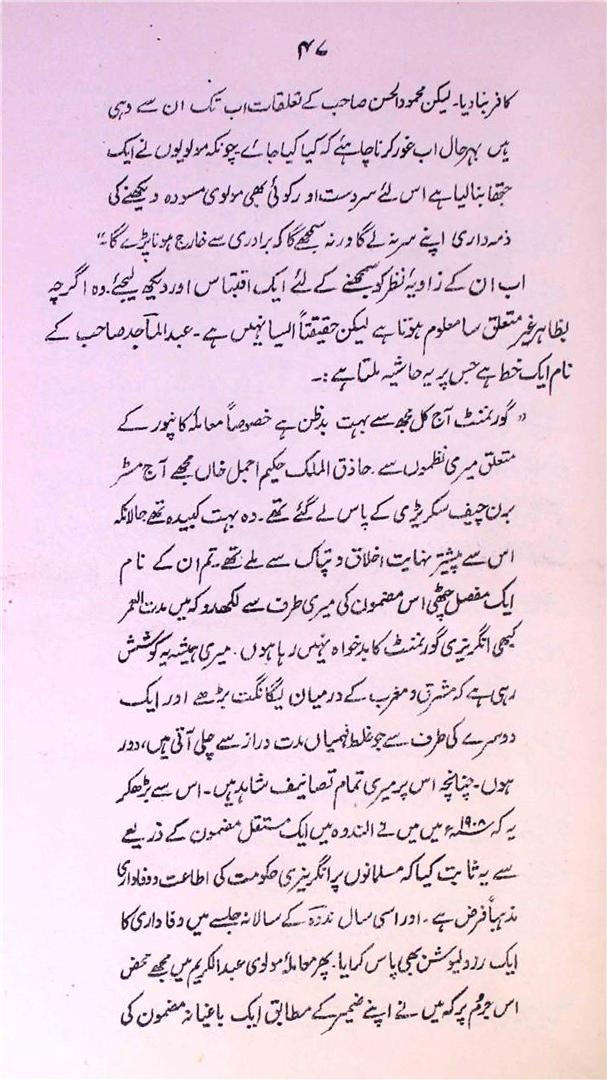 ۴۷
کافر بنا دیا۔ لیکن محمود الحسن صاحب کے تعلقات اب تک ان سے وہی
ہیں بہر حال اب غور کرنا چاہئے کہ کیا کیا جائے۔ چونکہ مولویوں نے ایک
جتھا بنا لیا ہے اس لئے سر دست اور کوئی بھی مولوی مسودہ دیکھنے کی
ذمہ داری اپنے سر نہ لے گا ورنہ سمجھے گا کہ برادری سے خارج ہونا پڑے گا۔"
اب ان کے زاویۂ نظر کو سمجھنے کے لئے ایک اقتباس اور دیکھ لیجئے۔ وہ اگرچہ
بظاہر غیر متعلق سا معلوم ہوتا ہے لیکن حقیقتاً ایسا نہیں ہے۔ عبد الماجد صاحب کے
نام ایک خط ہے جس پر یہ حاشیہ ملتا ہے:۔
"گورنمنٹ آج کل مجھ سے بہت بدظن ہے خصوصاً معاملۂ کانپور کے
متعلق میری نظموں سے۔ حاذق الملک حکیم اجمل خاں مجھے آج مسٹر
برن چیف سکریٹری کے پاس لے گئے تھے۔ وہ بہت کبیدہ تھے حالانکہ
اس سے پیشتر نہایت اخلاق و تپاک سے ملے تھے۔ تم ان کے نام
ایک مفصل چٹھی اس مضمون کی میری طرف سے لکھدو کہ میں مدت العمر
کبھی انگریزی گورنمنٹ کا بدخواہ نہیں رہا ہوں۔ میری ہمیشہ یہ کوشش
رہی ہے کہ مشرق و مغرب کے درمیان یگانگت بڑھے اور ایک
دوسرے کی طرف سے جو غلط فہمیاں مدت دراز سے چلی آتی ہیں، دور
ہوں۔ چنانچہ اس پر میری تمام تصانیف شاہد ہیں۔ اس سے بڑھکر
یہ کہ ۱۹۰۸ء میں میں نے الندوہ میں ایک مستقل مضمون کے ذریعے
سے یہ ثابت کیا کہ مسلمانوں پر انگریزی حکومت کی اطاعت و وفاداری
مذہباً فرض ہے۔ اور اسی سال ندوہ کے سالانہ جلسے میں وفاداری کا
ایک رزولیوشن بھی پاس کرایا۔ پھر معاملۂ مولوی عبد الکریم میں مجھے محض
اس جرم پر کہ میں نے اپنے ضمیر کے مطابق ایک باغیانہ مضمون کی